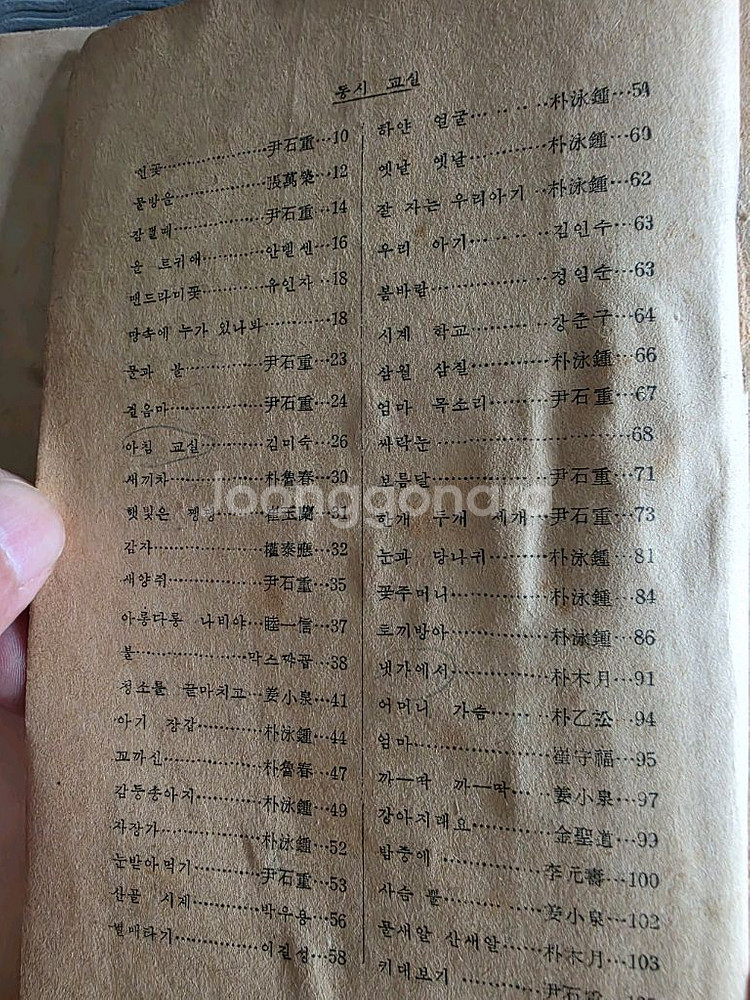 동시 교실
연꽃……………尹石重…10
물방울…………張萬榮…12
잠뱅데…………尹石重…14
윤 트귀애………안델센…16
맨드라미꽃………유인자…18
땅속에 누가 있나봐………18
물과 불…………尹石重…23
걸음마…………尹石重…24
아침 교실………김미숙…26
새끼차…………朴魯春…30
햇빛은 쨍쨍……崔玉蘭…31
감자……………權泰應…32
새양쥐…………尹石重…35
아롱다롱 나비야…睦一信…37
불………………막스쨔꼽…38
청소를 끝마치고…姜小泉…41
아기 장갑………朴泳鍾…44
꼬까신…………朴魯春…47
감둥송아지………朴泳鍾…49
자장가…………朴泳鍾…52
눈받아먹기………尹石重…53
산골 시계………박우용…56
별매타기…………이길성…58
하얀 얼굴………朴泳鍾…59
옛날 옛날………朴泳鍾…60
잘 자는 우리아기…朴泳鍾…62
우리 아기………김인수…63
봄바람…………정임순…63
시계 학교………강준구…64
삼월 삼질………朴泳鍾…66
엄마 목소리………尹石重…67
싸락눈……………………68
보름달…………尹石重…71
한개 두개 세개…尹石重…73
눈과 당나귀………朴泳鍾…81
꽃주머니…………朴泳鍾…84
토끼방아…………朴泳鍾…86
냇가에서…………朴木月…91
어머니 가슴………朴乙松…94
엄마……………崔守福…95
까―딱 까―딱……姜小泉…97
강아지래요………金聖道…99
밤중에…………李元壽…100
사슴 뿔…………姜小泉…102
물새알 산새알……朴木月…103
키대보기…………尹石重
Joonggonara